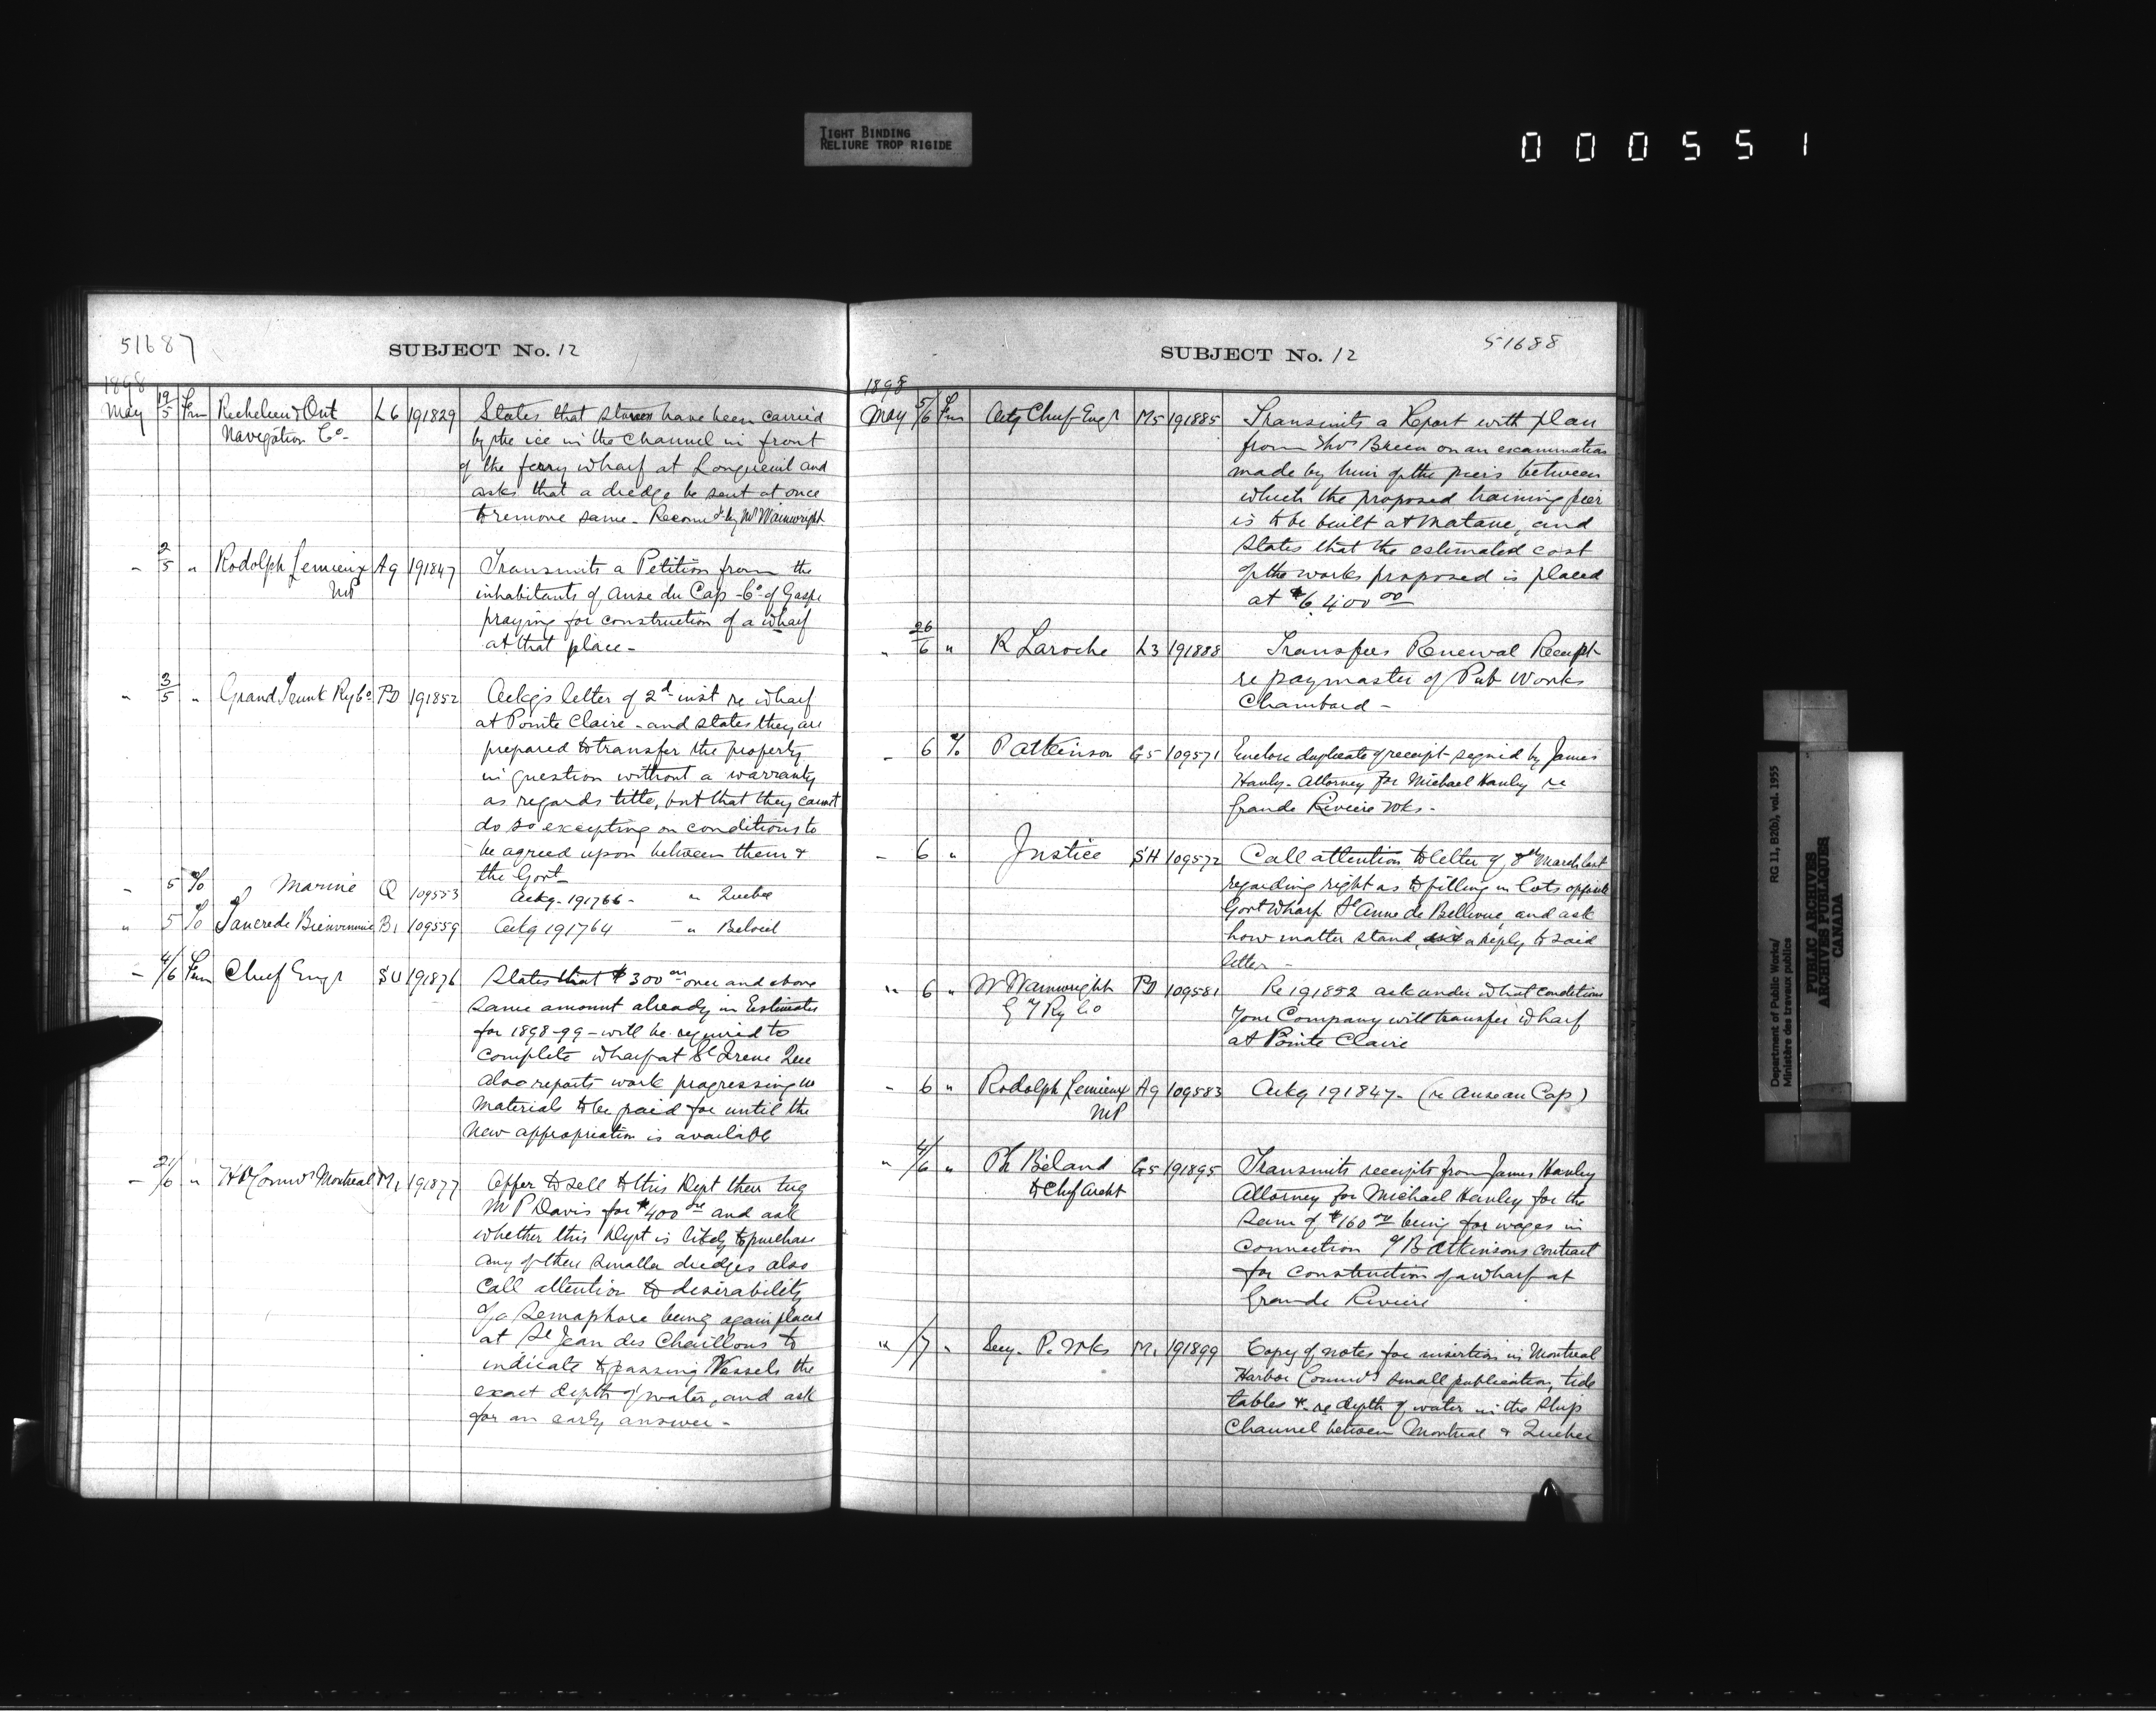 TIGHT BINDING
RELIURE TROP RIGIDE
000551
51687
SUBJECT No. 12
1898
May 19/5 Frm Richelieu & Ont L6 191829 States that stones have been carried
Navigation Co - by the ice in the channel in front
of the ferry wharf at Longueuil and
asks that a dredge be sent at once
to remove same - Recomd by Mr Wainwright
- 2/5 " Rodolph Lemieux Ag 191847 Transmits a Petition from the
MP inhabitants of Anse du Cap - Co of Gaspe
praying for construction of a wharf
at that place -
" 3/5 " Grand Trunk Ry Co PD 191852 Ackgs letter of 2d inst re wharf
at Pointe Claire - and states they are
prepared to transfer the property
in question without a warranty
as regards title, but that they cannot
do so excepting on conditions to
be agreed upon between them &
the Govt
" 5 To Marine Q 109553 Ackg - 191766 - " Quebec
" 5 To Tancrede Bienvenue B1 109559 Ackg 191764 - " Beloeil
- 4/6 Frm Chief Engr SU 191876 States that $300 00 over and above
same amount already in Estimates
for 1898-99 - will be required to
complete wharf at St Irene Que
also reports work progressing
materials to be paid for until the
new appropriation is available
- 21/6 " H Comrs Montreal M1 191877 Offer to sell to this Dept their tug
M P Davis for $400 and ask
whether this Dept is likely to purchase
any of their smaller dredges also
call attention to desirability
of a Semaphore being again placed
at St Jean des Chaillons to
indicate to passing Vessels the
exact depth of water, and ask
for an early answer -
SUBJECT No. 12
51688
1898
May 5/6 Frm Actg Chief Engr M5 191885 Transmits a Report with plan
from Thos Breen on an examination
made by him of the piers between
which the proposed training pier
is to be built at Matane, and
states that the estimated cost
of the works proposed is placed
at $6,400 00
" 26/6 " R Laroche L3 191888 Transfers Renewal Receipt
re paymaster of Pub Works
Chambord -
- 6 To P Atkinson G5 109571 Enclose duplicate of receipt signed by James
Hanly - Attorney for Michael Hanly re
Grande Riviere wks -
- 6 " Justice SH 109572 Call attention to letter of 8th March last
regarding right as to filling in lots opposite
Govt Wharf St Anne de Bellevue, and ask
how matter stand, a reply to said
letter -
" 6 " W Wainwright PD 109581 Re 191852 ask under what conditions
G T Ry Co your Company will transfer wharf
at Pointe Claire
- 6 " Rodolph Lemieux Ag 109583 Ackg 191847 - (re Anse au Cap)
MP
" 4/6 " Ph Béland G5 191895 Transmits receipts from James Hanly
to Chf Archt Attorney for Michael Hanley for the
sum of $160 00 being for wages in
connection of B Atkinsons contract
for construction of a wharf at
Grande Riviere
" /7 " Secy - P. Wks M1 191899 Copy of notes for insertion in Montreal
Harbor Comrs small publication, tide
tables & re depth of water in the Ship
Channel between Montreal & Quebec
Department of Public Works/
Ministère des travaux publics
RG 11, B2(b), vol. 1955
PUBLIC ARCHIVES
ARCHIVES PUBLIQUES
CANADA